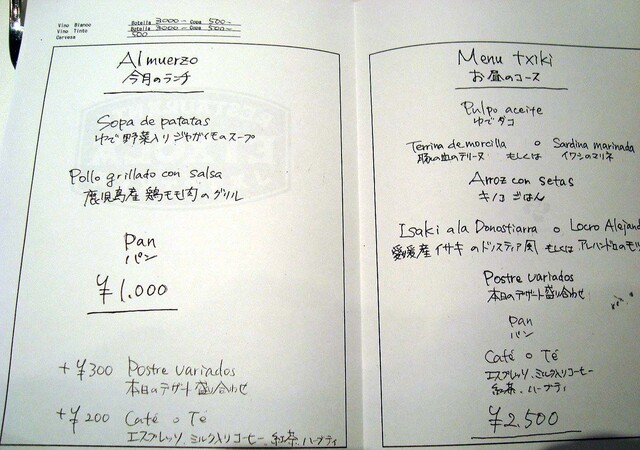 Vino Bianco Botella 3000- Copa 500-
Vino Tinto Botella 3000- Copa 500-
Cerveza 500
Almuerzo
今月のランチ
Sopa de patatas
ゆで野菜入りジャガイモのスープ
Pollo grillado con salsa
鹿児島産 鶏モモ肉のグリル
Pan
パン
¥1.000
+¥300 Postre Variados
本日のデザート盛り合わせ
+¥200 Café o Té
エスプレッソ、ミルク入りコーヒー、紅茶、ハーブティ
Menu txiki
お昼のコース
Pulpo aceite
ゆでダコ
Terrina de morcilla o Sardina marinada
豚の血のテリーヌ もしくは イワシのマリネ
Arroz con setas
キノコごはん
Isaki a la Donostiarra o Locro Alejand
愛媛産イサキのドノスティア風 もしくは アレハンドロのモツ
Postre variados
本日のデザート盛り合わせ
Pan
パン
Café o Té
エスプレッソ、ミルク入りコーヒー
紅茶、ハーブティ
¥2.500